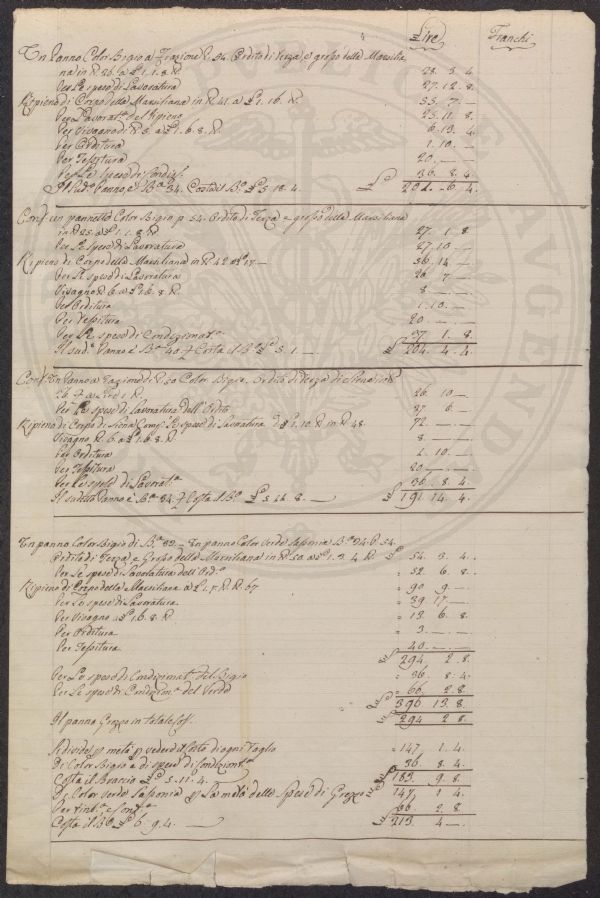 Lire Franchi
Un Panno Color Bigio a Frazione P. 54. Ordito di Terza e grosso della Marsilia
na in R. 26. a £ 1. 1. 8. R. 28. 3. 4
Per Le spese di Lavoratura 27. 12. 8.
Ripieno di Corpo della Marsiliana in R. 41. a £ 1. 16. R. 55. 7. —
Per Lavorat.ª del Ripieno 25. 11. 8.
Per Vivagno di R. 5. a £ 1. 6. 8. R. 6. 13. 4
Per Orditura 1. 10. —
Per Tessitura 20. — —
Per Le Spese di 36. 8. 4
Il Sud.º Panno, è B.ª 34. Costa il B.º £ 5. 18. 4. 201. 6. 4.
Conf. un pannetto Color Bigio p 54. Ordito di Terza e grosso della Marsiliana
in R. 25. a £ 1. 1. 8. R. 27. 1. 8
Per Le Spese di Lavoratura 27. 10. —
Ripieno di Corpo della Marsiliana in R. 42 56. 14 —
Per Le spese di Lavoratura 26. 7 —
Vivagno R. 6. a £ 1. 6. 8. R. 8 — —
Per Orditura 1. 10. —
Per Tessitura 20 — —
Per Le spese di Condizionat.ª 37. 1. 8
Il Sud.º Panno è B.ª 40. Costa il B.º £ 5. 1. — 204. 4. 4.
Conf. Un Panno a Color Bigio. Ordito di Terza di
26. 10 —
Per Le spese di Lavoratura dell'Ordito 37. 6. —
Ripieno di Corpo di Siena Le spese di Lavoratura £ 1. 10. R. in R. 48. 72. — —
Vivagno R. 6. a £ 1. 6. 8. R 8. — —
Per Orditura 1. 10. —
Per Tessitura 20 — —
Per Le spese di Lavorat.ª 36. 8. 4
Il sudetto Panno è B.ª 34. Costa il B.º 191. 14. 4.
Un panno Color Bigio di B.ª 33. Un panno Color Verde Sassonia B.ª 34. P. 54.
Ordito di Terza e Grosso della Marsiliana in R. 50. a £ 1. 3. 4 R 54. 3. 4.
Per Le spese di Lavoratura dell'Ord.º 52. 6. 8.
Ripieno di Corpo della Marsiliana a £ 1. 7. R. R. 67 90 9. —
Per Le spese di Lavoratura 39. 17. —
Per Vivagno a £ 1. 6. 8. R. 13. 6. 8
Per Orditura 3. — —
Per Tessitura 40. — —
294. 2. 8.
Per Le spese di Condizionat.ª del Bigio 36. 8. 4.
Per Le spese di Condizion.ª del Verde 66. 2. 8
396 13. 8
Il panno Grezzo in totale 294 2 8.
Si divide p metà p vedere il Costo di ogni Taglio 147. 1. 4.
Di Color Bigio e di spese di Condizion.ª 36. 8 4
Costa il Braccio £ 5. 11. 4. 183. 9. 8
Di Color Verde Sassonia p La metà delle Spese di Grezzo 147. 1 4
Per tint.ª e Cond.ª 66. 2. 8
Costa il B.º £ 6. 9. 4. 213. 4 —